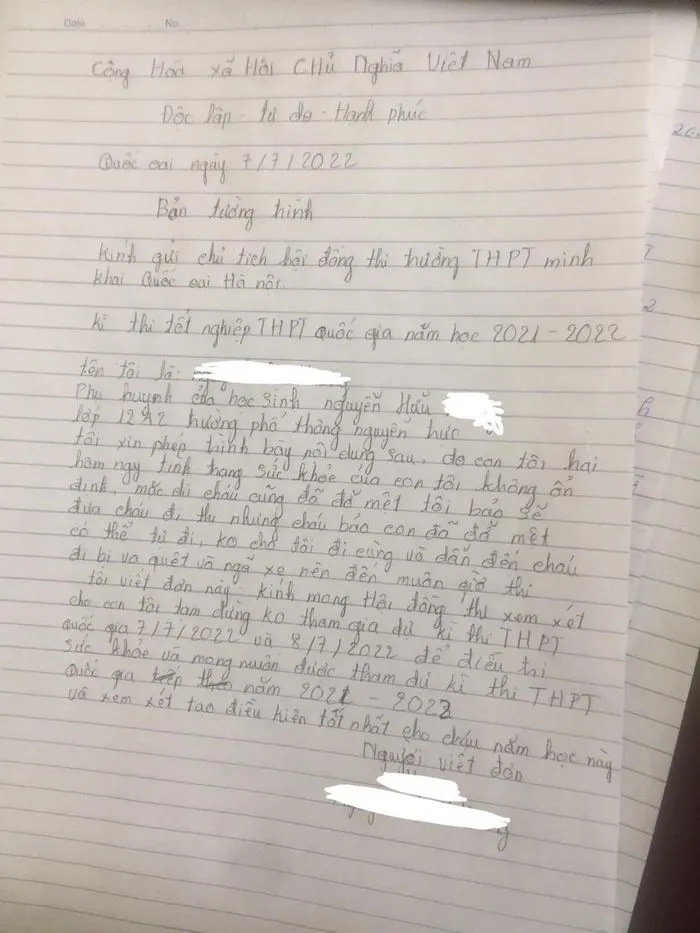 Date No.
Cộng Hoà xã Hôi CHủ Nghĩa Việt Nam
Độc lập - tự do - Hạnh phúc
Quốc oai ngày 7/7/2022
Bản tường trình
kính gửi chủ tich hội đồng thi trường THPT minh
khai Quốc oai Hà nội.
kì thi tốt nghiệp THPT quốc gia năm học 2021 - 2022
tên tôi là:
Phụ huynh của học sinh nguyễn Hữu
lớp 12A2 trường phổ thông nguyễn trực
tôi xin phép trình bày nội dung sau. do con tôi hai
hôm nay tình trạng sức khỏe của con tôi không ổn
định, mặc dù cháu cũng đã đỡ mệt tôi bảo sẽ
đưa cháu đi thi nhưng cháu bảo con đã đỡ mệt
có thể tự đi, ko cho tôi đi cùng và dẫn đến cháu
đi bị va quệt và ngã xe nên đến muộn giờ thi
tôi viết đơn này kính mong Hội đồng thi xem xét
cho con tôi tạm dừng ko tham gia dự kì thi THPT
quốc gia 7/7/2022 và 8/7/2022 để điều trị
sức khỏe và mong muốn được tham dự kì thi THPT
Quốc gia năm 2021 - 2022
và xem xét tạo điều kiện tốt nhất cho cháu năm học này
Người viết đơn